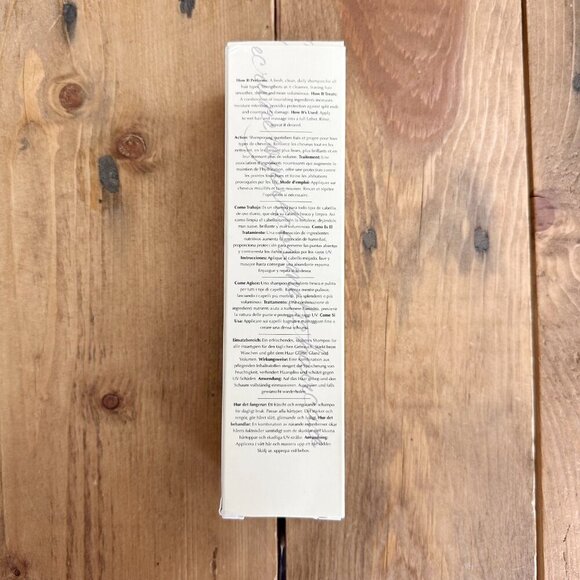 How It Performs: A fresh, clean, daily shampoo for all
hair types. Strengthens as it cleanses, leaving hair
smoother, shinier and more voluminous. How It Treats:
A combination of nourishing ingredients increases
moisture retention, provides protection against split ends
and counters UV damage. How It's Used: Apply
to wet hair and massage into a full lather. Rinse,
repeat if desired.
Action: Shampooing quotidien frais et propre pour tous
types de cheveux. Renforce les cheveux tout en les
nettoyant, en les plus lisses, plus brillants et en
leur donnant plus de volume. Traitement: Une
association d'ingrédients nourrissants qui augmente la
rétention de l'hydratation, offre une protection contre
les pointes fourchues et contre les
provoquées par les UV. Mode d'emploi: Appliquer sur
cheveux mouillés et faire mousser. Rincer et répéter
l'opération si nécessaire.
Como Trabaja: Es un shampoo para todo tipo de cabello,
de uso diario, que deja su cabello fresco y limpio. Así
como limpia el cabello también lo fortalece, dejándolo
más suave, brillante y con volumen. Como Es El
Tratamiento: Una combinación de ingredientes
nutritivos aumenta la retención de humedad,
proporciona protección para las puntas abiertas
y contrarresta los daños causados por los rayos UV.
Instrucciones: Aplique al cabello mojado, lave y
masajee hasta conseguir una abundante espuma.
Enjuague y repita si lo desea.
Come Agisce: Uno shampoo quotidiano fresco e pulito
per tutti i tipi di capelli. Rinforza mentre pulisce,
lasciando i capelli più morbidi, più splendenti e più
voluminosi. Trattamento: Una combinazione di
ingredienti nutrienti aiuta a trattenere l'umidità, previene
la rottura delle punte e protegge dai raggi UV. Come Si
Usa: Applicare sui capelli bagnati e massaggiare fino a
creare una densa schiuma.
Einsatzbereich: Ein erfrischendes, sauberes Shampoo für
alle Haartypen für den täglichen Gebrauch. Stärkt beim
Waschen und gibt dem Haar Glätte, Glanz und
Volumen. Wirkungsweise: Eine Kombination aus
pflegenden Inhaltsstoffen steigert die Speicherung von
Feuchtigkeit, verhindert Haarspliss und schützt gegen
UV-Schäden. Anwendung: Auf das Haar geben und den
Schaum vollständig einmassieren. Ausspülen und falls
gewünscht wiederholen.
Hur det fungerar: Ett fräscht och rengörande schampo
för dagligt bruk. Passar alla hårtyper. Det stärker och
rengör, gör håret slätt, glänsande och luftigt. Hur det
behandlar: En kombination av närande ingredienser ökar
hårets fukthalt samtidigt som de skyddar det kluvna
hårtoppar och skadliga UV-strålar. Användning:
Applicera i vått hår och massera upp ett rikt lödder.
Skölj ur, upprepa vid behov.